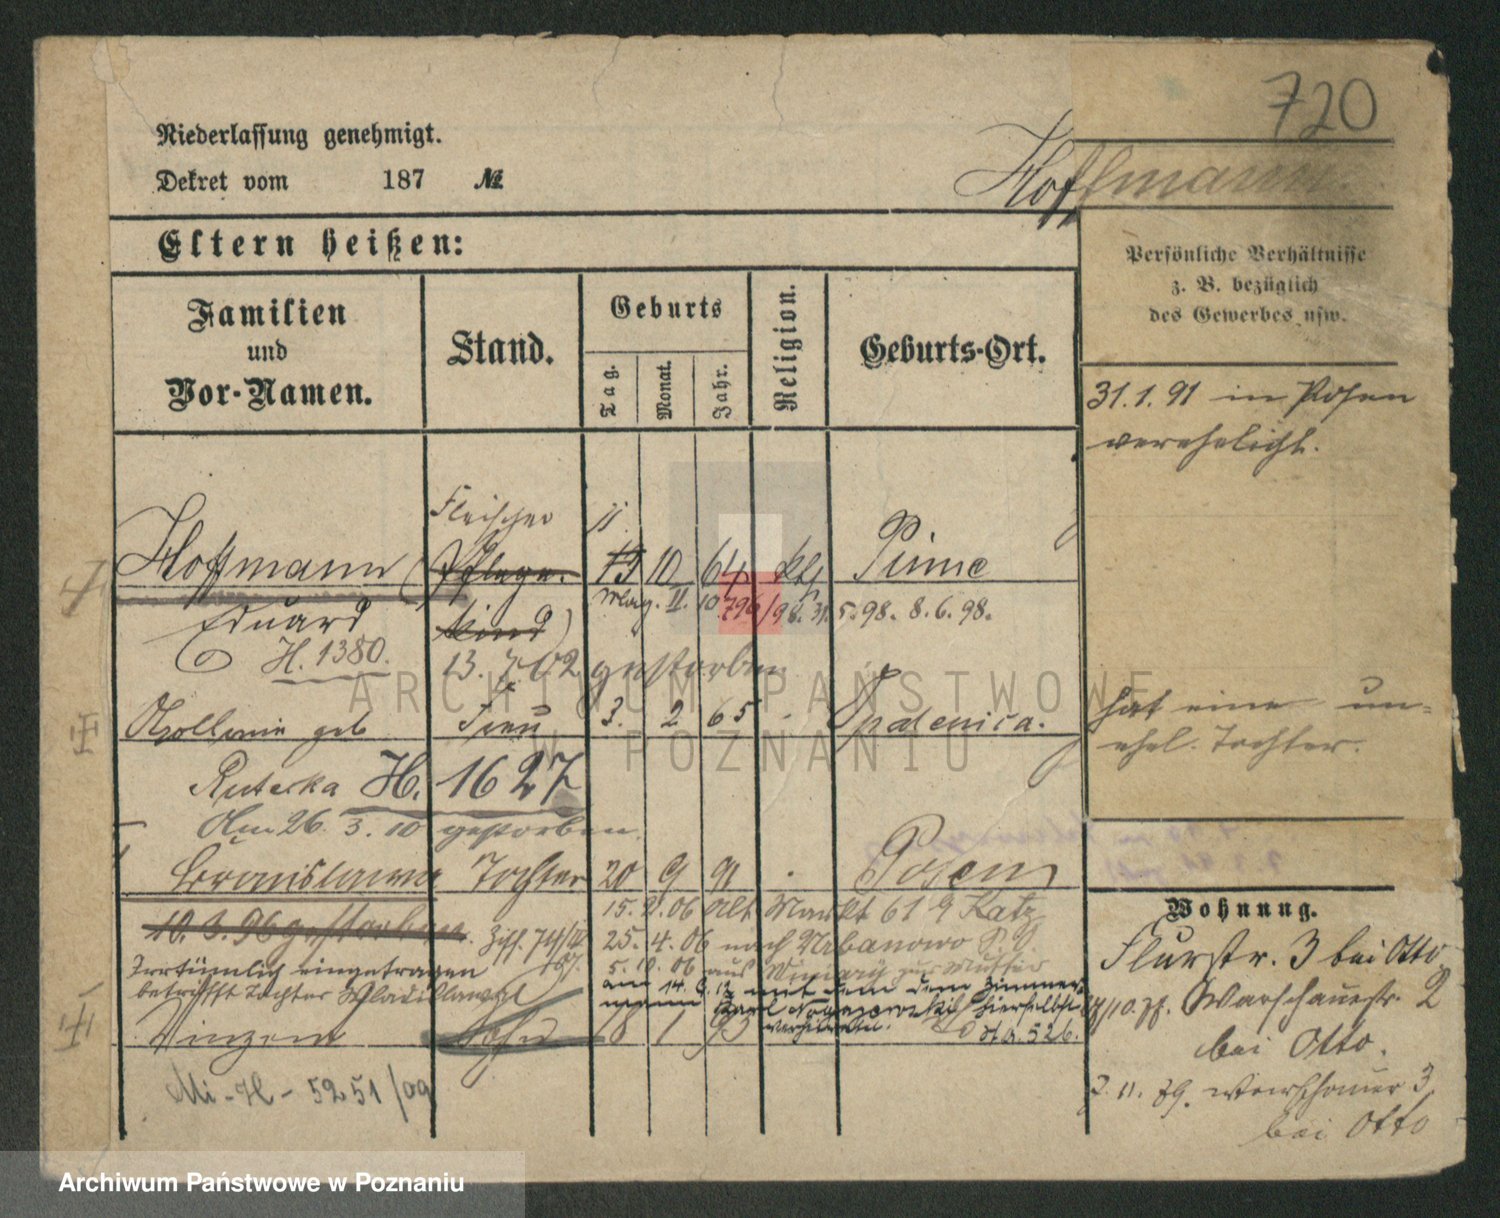 720
Niederlassung genehmigt.
Dekret vom 187 №
Hoffmann
Eltern heißen:
Persönliche Verhältnisse
z. B. bezüglich
des Gewerbes usw.
Familien
und
Vor-Namen.
Stand.
Geburts
Tag.
Monat.
Jahr.
Religion.
Geburts-Ort.
31.1.91 in Posen
verehelicht.
Fleischer
11
Hoffmann (Pflege- 13 10 64 kth Pinne
Mag. II. 10.796/98. 31.5.98. 8.6.98.
Eduard kind)
H. 1380. 13. 7. 02 gestorben
Apollonia geb Frau 3. 2 65 - Opalenica.
hat eine un=
ehel. Tochter.
Rutecka H. 1627
Am 26. 3. 10 gestorben
Bronislawa Tochter 20 9 91 - Posen
15. 2. 06 Alt Markt 61 9 Katz
10. 3. 96 gestorben. 25. 4. 06 nach Urbanowo
Irrtümlich eingetragen 5. 10. 06 aus Winiary zur Mutter
betrifft Tochter Wladislawa
am 14. 9. 12 mit dem Zimmer-
mann Karl hierselbst
verheiratet. H.A. 526.
Vinzent Sohn 8 1 93
Mi - H - 5251/09
Wohnung.
Flurstr. 3 bei Otto
Warschauerstr. 2
bei Otto.
2. 11. 79. Warschauer 3
bei Otto
ARCHIWUM PAŃSTWOWE
W POZNANIU
Archiwum Państwowe w Poznaniu